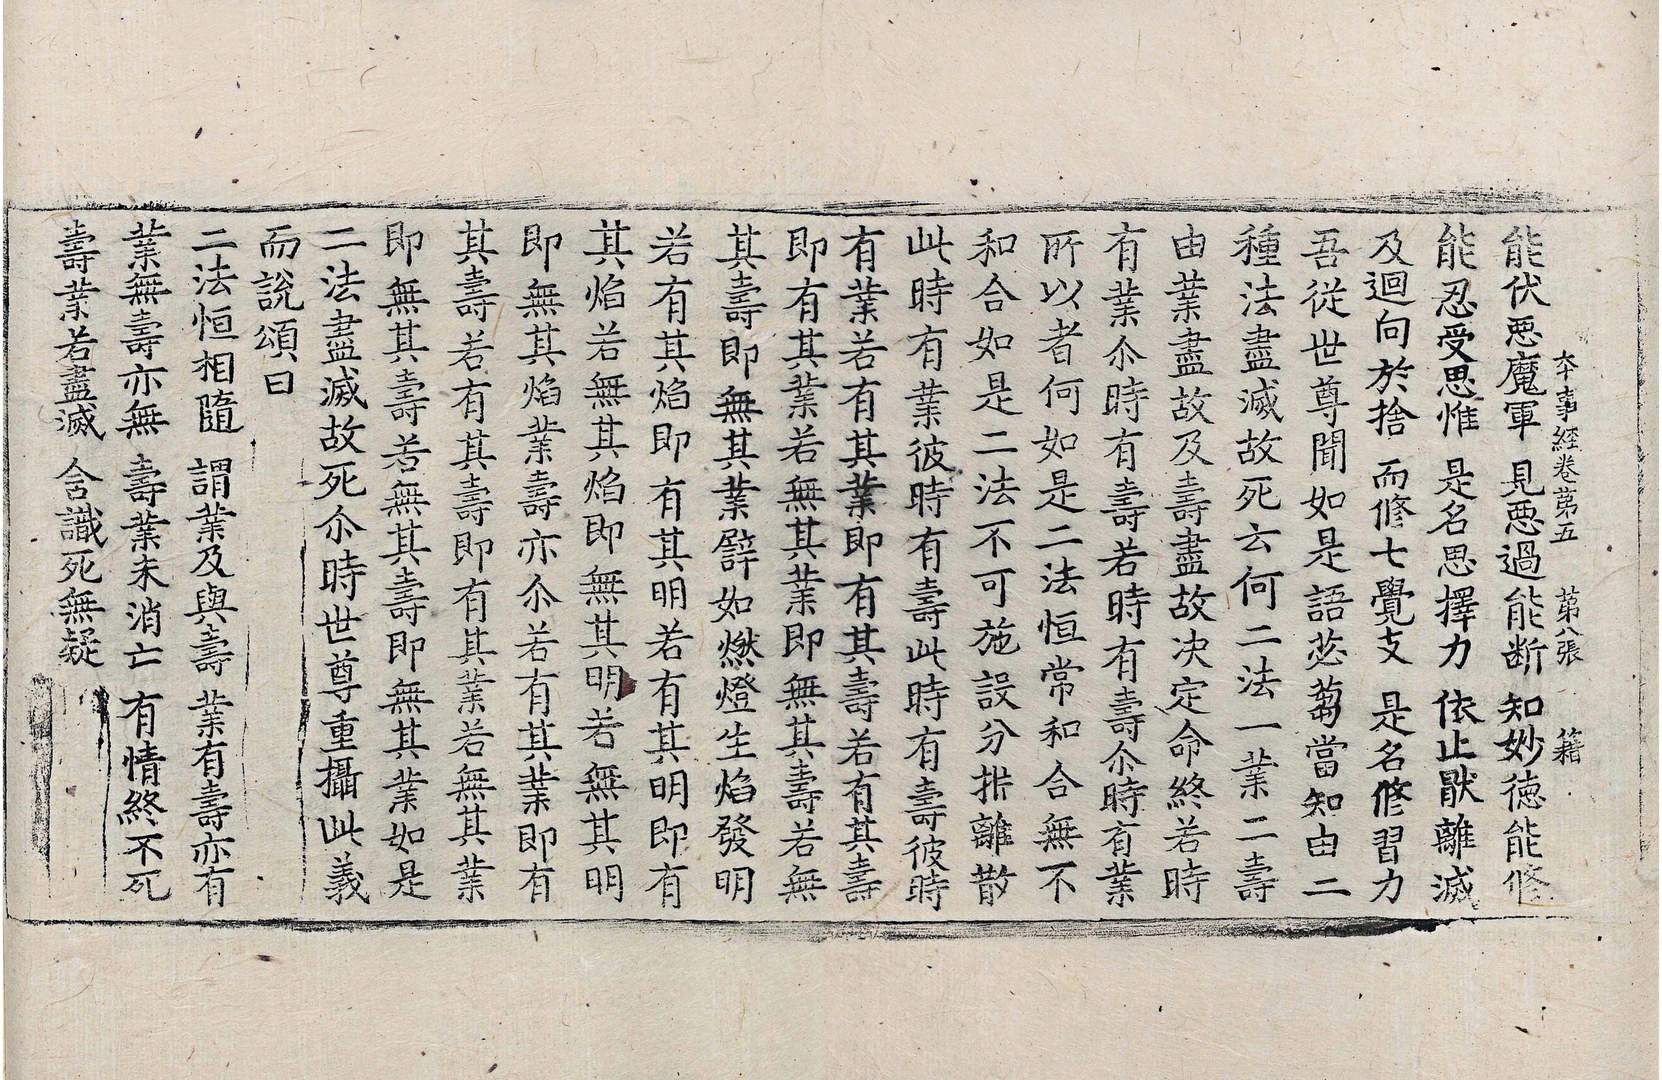 本事經卷第五　第八張　籍
能伏惡魔軍　見惡過能斷　知妙德能修
能忍受思惟　是名思擇力　依止猒離滅
及迴向於捨　而修七覺支　是名修習力
吾從世尊聞如是語苾蒭當知由二
種法盡滅故死云何二法一業二壽
由業盡故及壽盡故决定命終若時
有業尒時有壽若時有壽尒時有業
所以者何如是二法恒常和合無不
和合如是二法不可施設分㭊離散
此時有業彼時有壽此時有壽彼時
有業若有其業即有其壽若有其壽
即有其業若無其業即無其壽若無
其壽即無其業譬如燃燈生焰發明
若有其焰即有其明若有其明即有
其焰若無其焰即無其明若無其明
即無其焰業壽亦尒若有其業即有
其壽若有其壽即有其業若無其業
即無其壽若無其壽即無其業如是
二法盡滅故死尒時世尊重攝此義
而說頌曰
二法恒相隨　謂業及與壽　業有壽亦有
業無壽亦無　壽業未消亡　有情終不死
壽業若盡滅　含識死無疑